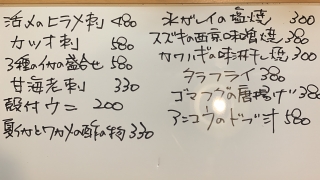 活〆のヒラメ刺 480
カツオ刺 580
3種のイカの盛合せ 580
甘海老刺 330
殻付ウニ 200
夏イカとワカメの酢の物 330
水ガレイの塩焼 300
スズキの西京味噌焼 380
カワハギの味醂干し焼 300
タラフライ 380
ゴマフグの唐揚げ 380
アンコウのドブ汁 580